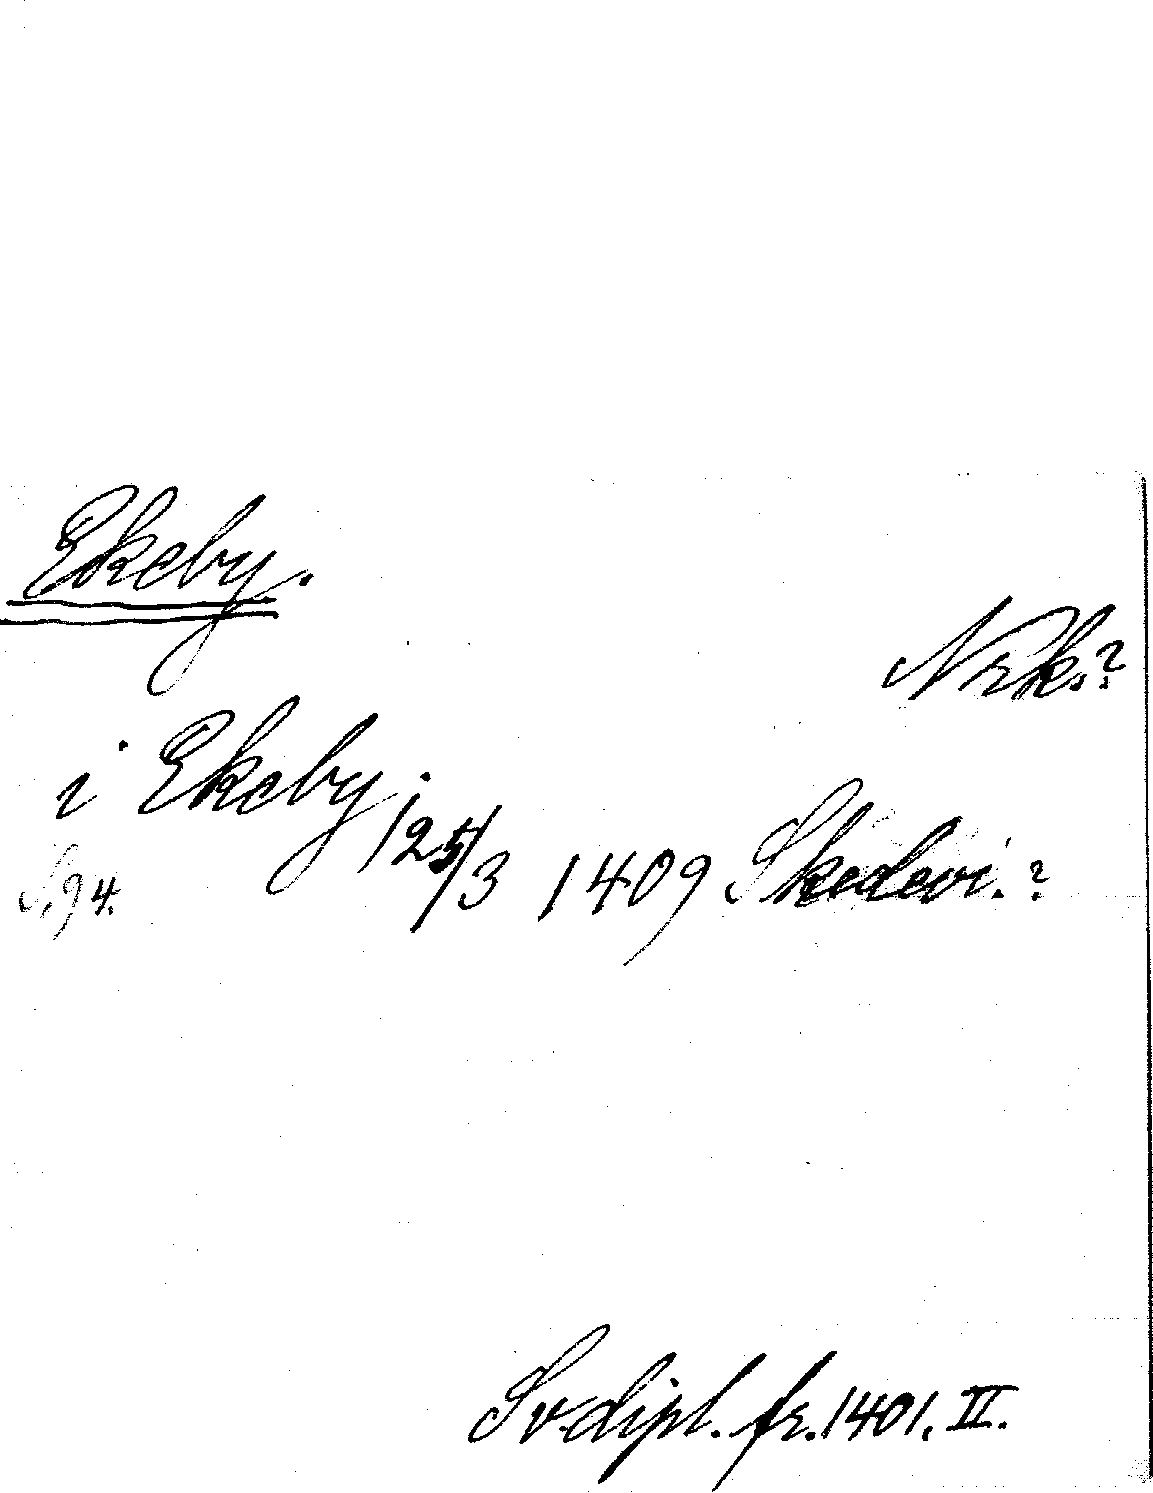 Ekeby.
Nrk.?
i Ekeby. 125/3 1409 Skedevi.?
S. 94.
Sv. dipl. fr. 1401. II.